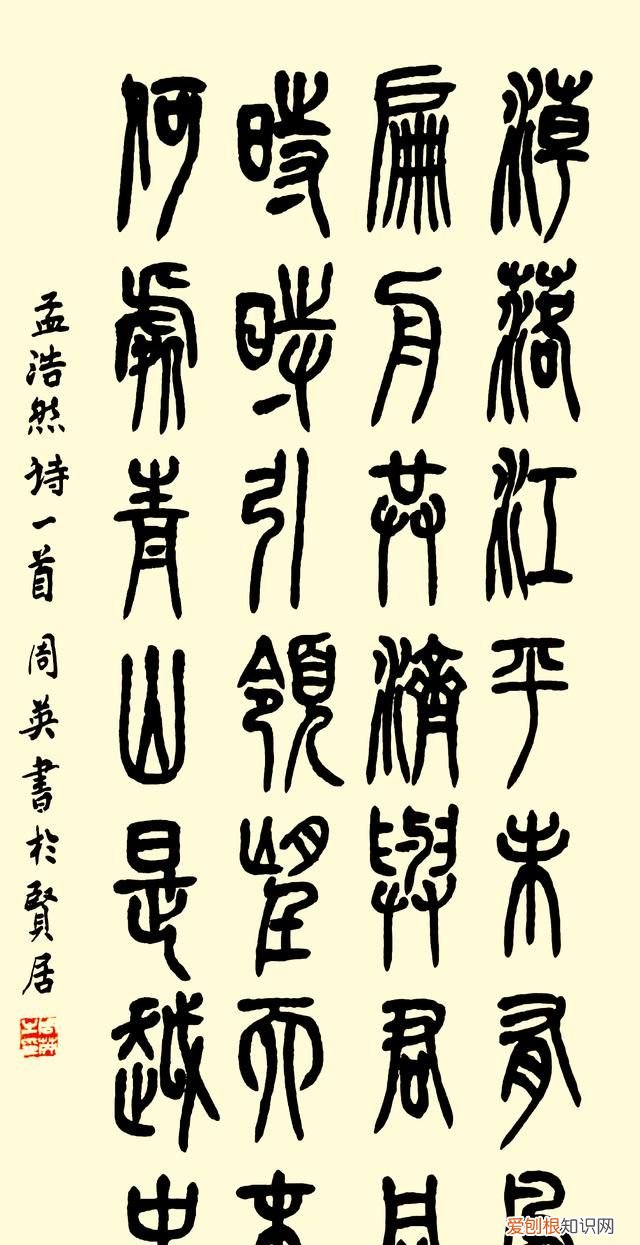 潮落江平未有風
扁舟共濟與君同
時時引領望天末
何處青山是越中
孟浩然诗一首 周英書於賢居
爱刨根知识网